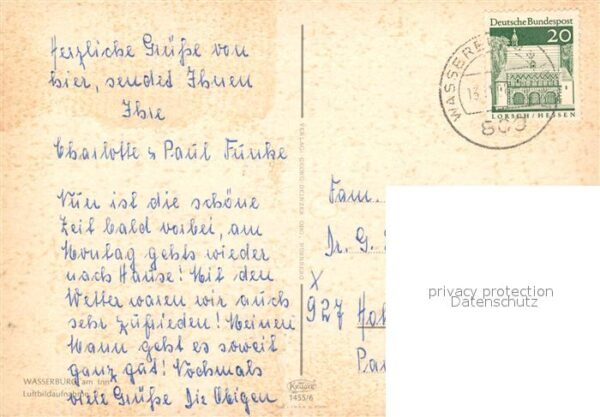 Herzliche Grüße von
hier, sendet Ihnen
Ihre
Charlotte & Paul Funke
Nun ist die schöne
Zeit bald vorbei, am
Montag gehts wieder
nach Hause! Mit den
Wetter waren wir auch
sehr zufrieden! Meinen
Mann geht es soweit
ganz gut! Nochmals
viele Grüße Die Obigen
WASSERBURG am Inn
Luftbildaufnahme
VERLAG GEORG
Krüger
1455/6
Deutsche Bundespost
20
LORSCH/HESSEN
WASSERB
13.
809
Fam.
Dr. G.
X
927
privacy protection
Datenschutz